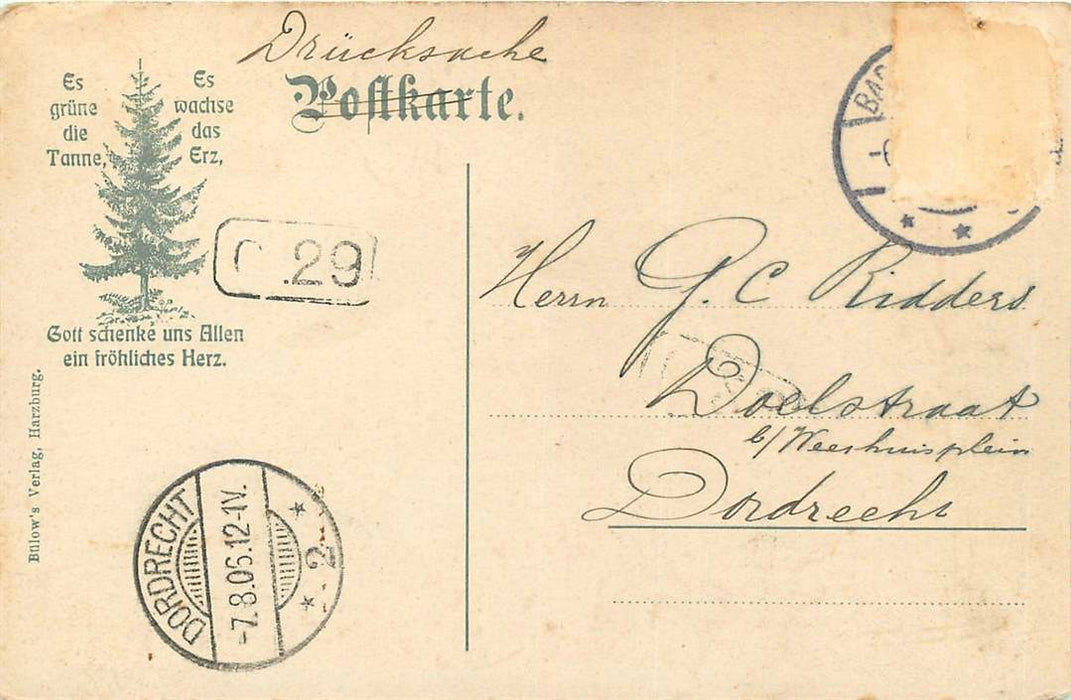 Drücksache
Postkarte.
Es grüne die Tanne,
Es wachse das Erz,
Gott schenke uns Allen
ein fröhliches Herz.
Bülow's Verlag, Harzburg.
29
Herrn G. C Ridders
Doelstraat
b/Weeshuisplein
Dordrecht
DORDRECHT
-7.8.06.12-1V.
* 2 *